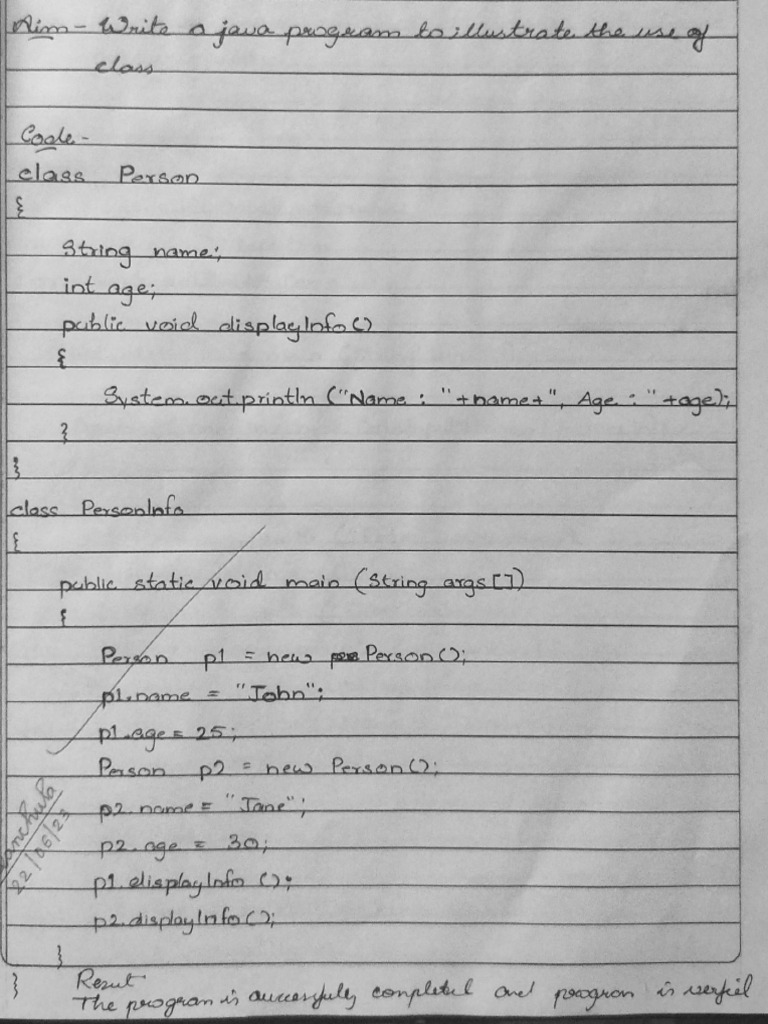 Aim - Write a java program to illustrate the use of
class
Code -
class Person
{
String name;
int age;
public void displayInfo()
{
System.out.println ("Name : "+name+", Age : "+age);
}
}
class PersonInfo
{
public static void main (String args[])
{
Person p1 = new Person();
p1.name = "John";
p1.age = 25;
Person p2 = new Person();
p2.name = "Jane";
p2.age = 30;
p1.displayInfo ();
p2.displayInfo();
}
} Result
The program is successfully completed and program is verfied
22/06/23